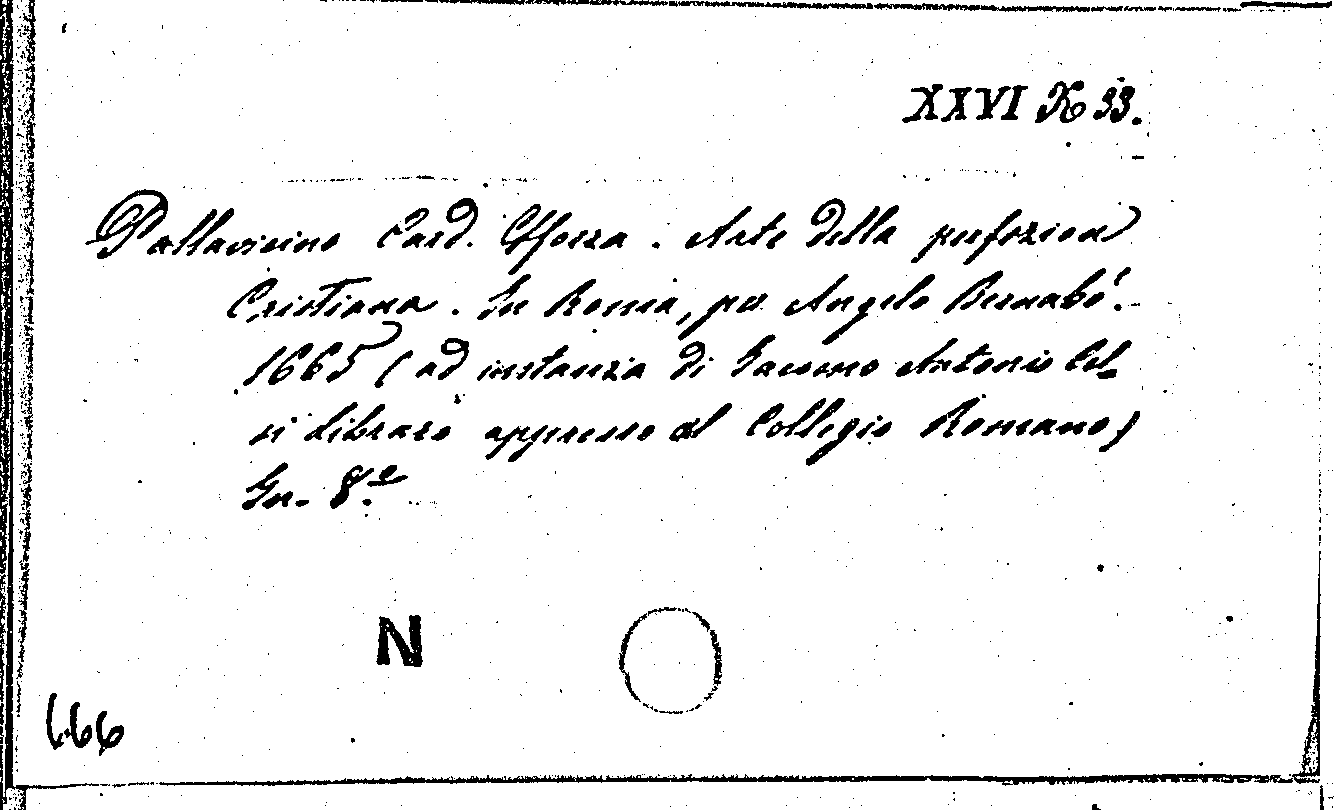 XXVI K 33.
Pallavicino Card. Sforza. Arte della perfezion
Cristiana. In Roma, per Angelo Bernabó.
1665 (ad instanza di Giacomo Antonio Cel-
si libraro appresso al Collegio Romano)
In. 8.º
N
666